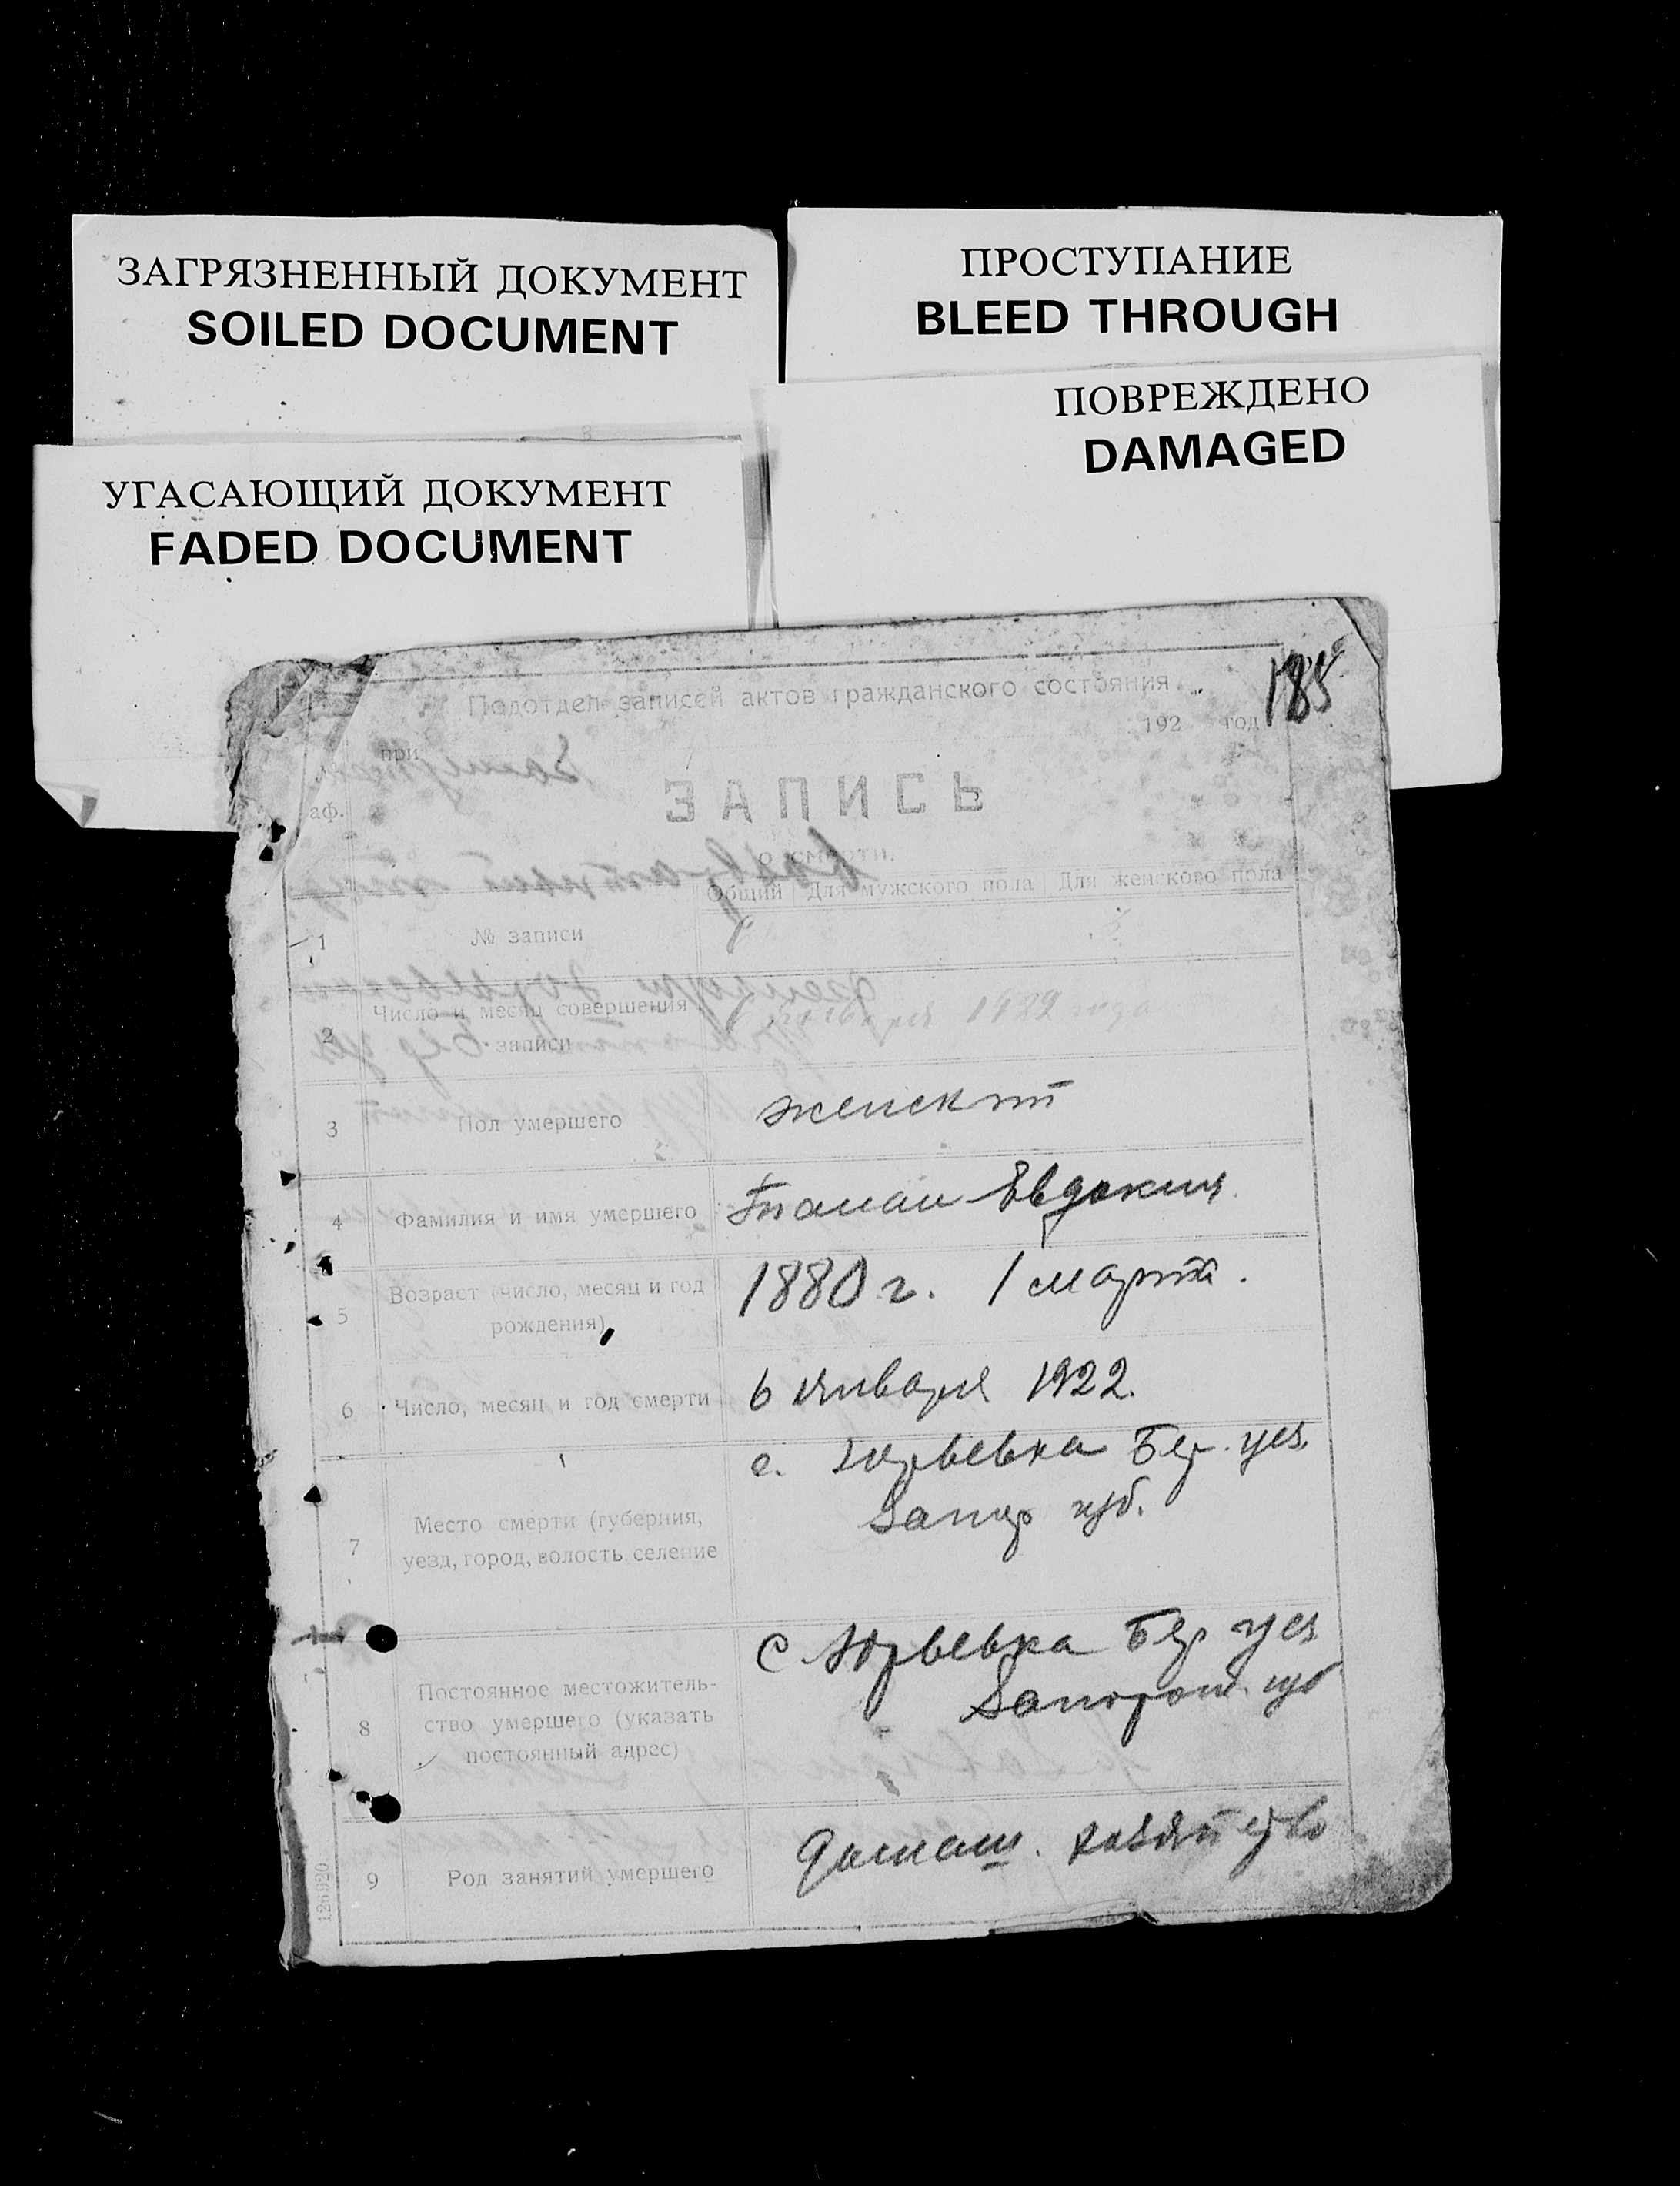 ЗАГРЯЗНЕННЫЙ ДОКУМЕНТ
SOILED DOCUMENT
ПРОСТУПАНИЕ
BLEED THROUGH
ПОВРЕЖДЕНО
DAMAGED
УГАСАЮЩИЙ ДОКУМЕНТ
FADED DOCUMENT
185
Подотдел записей актов гражданского состояния
192 год
при
аф.
ЗАПИСЬ
о смерти.
Общий Для мужского пола Для женсково пола
1 № записи
2 Число и месяц совершения записи января 1922 года
3 Пол умершего женский
4 Фамилия и имя умершего Евдокия
5 Возраст (число, месяц и год рождения) 1880 г. 1 марта.
6 Число, месяц и год смерти 6 января 1922.
7 Место смерти (губерния, уезд, город, волость селение с. Юрьевка Бер. уез.
Запор губ.
8 Постоянное местожитель-
ство умершего (указать
постоянный адрес)
с Юрьевка Бер уез
Запорож. губ
9 Род занятий умершего домаш. хозяйство
126920